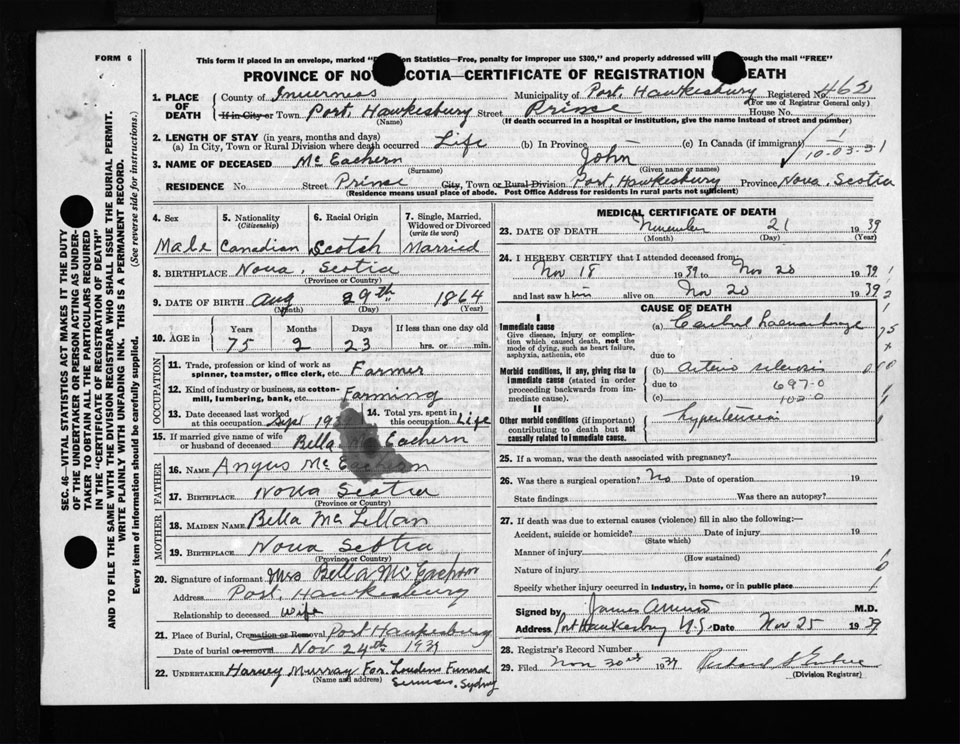 FORM 6
This form if placed in an envelope, marked "D on Statistics—Free, penalty for improper use $300," and properly addressed will rough the mail "FREE"
PROVINCE OF NO SCOTIA—CERTIFICATE OF REGISTRATION DEATH
1. PLACE OF DEATH County of Inverness Municipality of Port Hawkesbury Registered No. 462
(For use of Registrar General only)
If in City or Town Port Hawkesbury Street Prince House No.
(Name) (If death occurred in a hospital or institution, give the name instead of street and number)
2. LENGTH OF STAY (in years, months and days)
(a) In City, Town or Rural Division where death occurred Life (b) In Province (c) In Canada (if immigrant)
10-03-51
3. NAME OF DECEASED McEachern John
(Surname) (Given name or names)
RESIDENCE No. Street Prince City, Town or Rural Division Port Hawkesbury Province Nova Scotia
(Residence means usual place of abode. Post Office Address for residents in rural parts not sufficient)
4. Sex Male
5. Nationality (Citizenship) Canadian
6. Racial Origin Scotch
7. Single, Married, Widowed or Divorced (write the word) Married
8. BIRTHPLACE Nova Scotia
(Province or Country)
9. DATE OF BIRTH Aug 29th 1864
(Month) (Day) (Year)
10. AGE in Years Months Days If less than one day old
75 2 23 hrs. or min.
OCCUPATION
11. Trade, profession or kind of work as spinner, teamster, office clerk, etc. Farmer
12. Kind of industry or business, as cotton-mill, lumbering, bank, etc. Farming
13. Date deceased last worked at this occupation Sept 193
14. Total yrs. spent in this occupation Life
15. If married give name of wife or husband of deceased Bella Eachern
FATHER
16. NAME Angus McEachern
17. BIRTHPLACE Nova Scotia
(Province or Country)
MOTHER
18. MAIDEN NAME Bella McLellan
19. BIRTHPLACE Nova Scotia
(Province or Country)
20. Signature of informant Mrs Bella McEachern
Address Port Hawkesbury
Relationship to deceased wife
21. Place of Burial, Cremation or Removal Port Hawkesbury
Date of burial or removal Nov 24th 1939
22. UNDERTAKER Harvey Murray For. Loudens Funeral
(Name and address) Services, Sydney
MEDICAL CERTIFICATE OF DEATH
23. DATE OF DEATH November 21 1939
(Month) (Day) (Year)
24. I HEREBY CERTIFY that I attended deceased from:
Nov 18 1939 to Nov 20 1939
and last saw him alive on Nov 20 1939
CAUSE OF DEATH
I
Immediate cause (a) Cerebral haemorrhage
Give disease, injury or complication which caused death, not the mode of dying, such as heart failure, asphyxia, asthenia, etc
due to
Morbid conditions, if any, giving rise to immediate cause (stated in order proceeding backwards from immediate cause). (b) Arterio sclerosis
due to 697-0
(c) 102-0
II
Other morbid conditions (if important) contributing to death but not causally related to immediate cause. hypertension
25. If a woman, was the death associated with pregnancy?
26. Was there a surgical operation? No Date of operation 19
State findings Was there an autopsy?
27. If death was due to external causes (violence) fill in also the following:—
Accident, suicide or homicide? Date of injury 19
(State which)
Manner of injury
(How sustained)
Nature of injury
Specify whether injury occurred in industry, in home, or in public place
Signed by James M.D.
Address Port Hawkesbury N.S. Date Nov 25 1939
28. Registrar's Record Number
29. Filed Nov 30th 1939 Richard
(Division Registrar)
SEC. 46—VITAL STATISTICS ACT MAKES IT THE DUTY
OF THE UNDERTAKER OR PERSON ACTING AS UNDER-
TAKER TO OBTAIN ALL THE PARTICULARS REQUIRED
IN THE "CERTIFICATE OF REGISTRATION OF DEATH"
AND TO FILE THE SAME WITH THE DIVISION REGISTRAR WHO SHALL ISSUE THE BURIAL PERMIT.
WRITE PLAINLY WITH UNFADING INK. THIS IS A PERMANENT RECORD.
Every item of information should be carefully supplied. (See reverse side for instructions.)